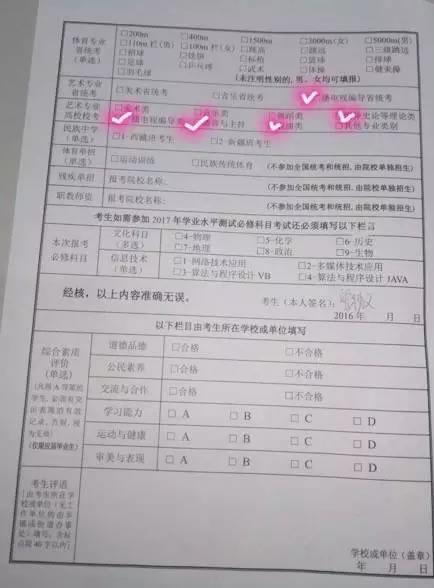 体育专业 □200m □400m □1500m □3000m(女) □5000m(男)
省统考 □110m栏(男) □100m栏(女) □跳高 □跳远 □三级跳远
(单选) □铅球 □铁饼 □标枪 □篮球 □排球
□足球 □乒乓球 □武术 □体操 □健美操
□羽毛球 (未注明性别的,男、女均可填报)
艺术专业 □美术省统考 □音乐省统考 播电视编导省统考
省统考
艺术专业 美术类 音乐类 舞蹈类 史论等理论类
高校校考 播电视编导类 音与主持 其他专业类别
民族中学 □1-西藏班考生 □2-新疆班考生
(单选)
体育单招 □运动训练 □民族传统体育 (不参加全国统考和统招,由院校单独招生)
(单选)
残疾单招 报考院校名称: (不参加全国统考和统招,由院校单独招生)
职教师资 报考院校名称: (不参加全国统考和统招,由院校单独招生)
考生如需参加2017年学业水平测试必修科目考试还必须填写以下栏目
本次报考 文化科目 □4-物理 □5-化学 □6-历史
必修科目 (多选) □7-地理 □8-政治 □9-生物
信息技术 □1-网络技术应用 □2-多媒体技术应用
(单选) □3-算法与程序设计VB □4-算法与程序设计JAVA
经核,以上内容准确无误。 考生(本人签名):
2016 年 月 日
以下栏目由考生所在学校或单位填写
综合素质 道德品德 □合格 □不合格
评价 公民素养 □合格 □不合格
(单选) 交流与合作 □合格 □不合格
学习能力 □A □B □C □D
运动与健康 □A □B □C □D
审美与表现 □A □B □C □D
(仅限应届毕业生)
考生评语
(由考生所在学
校或单位(无工
作单位的由乡
镇或街道办事
处)填写,含标
点限40字以内)
学校或单位(盖章)
年 月 日